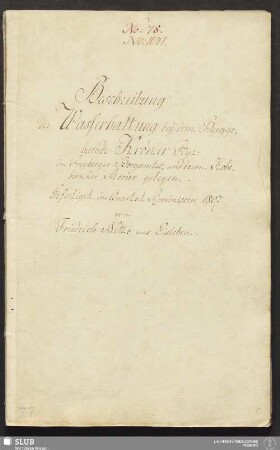 No: 78.
Beschreibung
der Wasserhaltung bey dem Bergge-
bäude Kröner Fdgr.
im Freyberger Bergamts, und dessen Hohe
birkner Revier gelegen.
Gefertiget im Quartal Reminiscere 1807
von
Friedrich
aus Eisleben.
77
SLUB